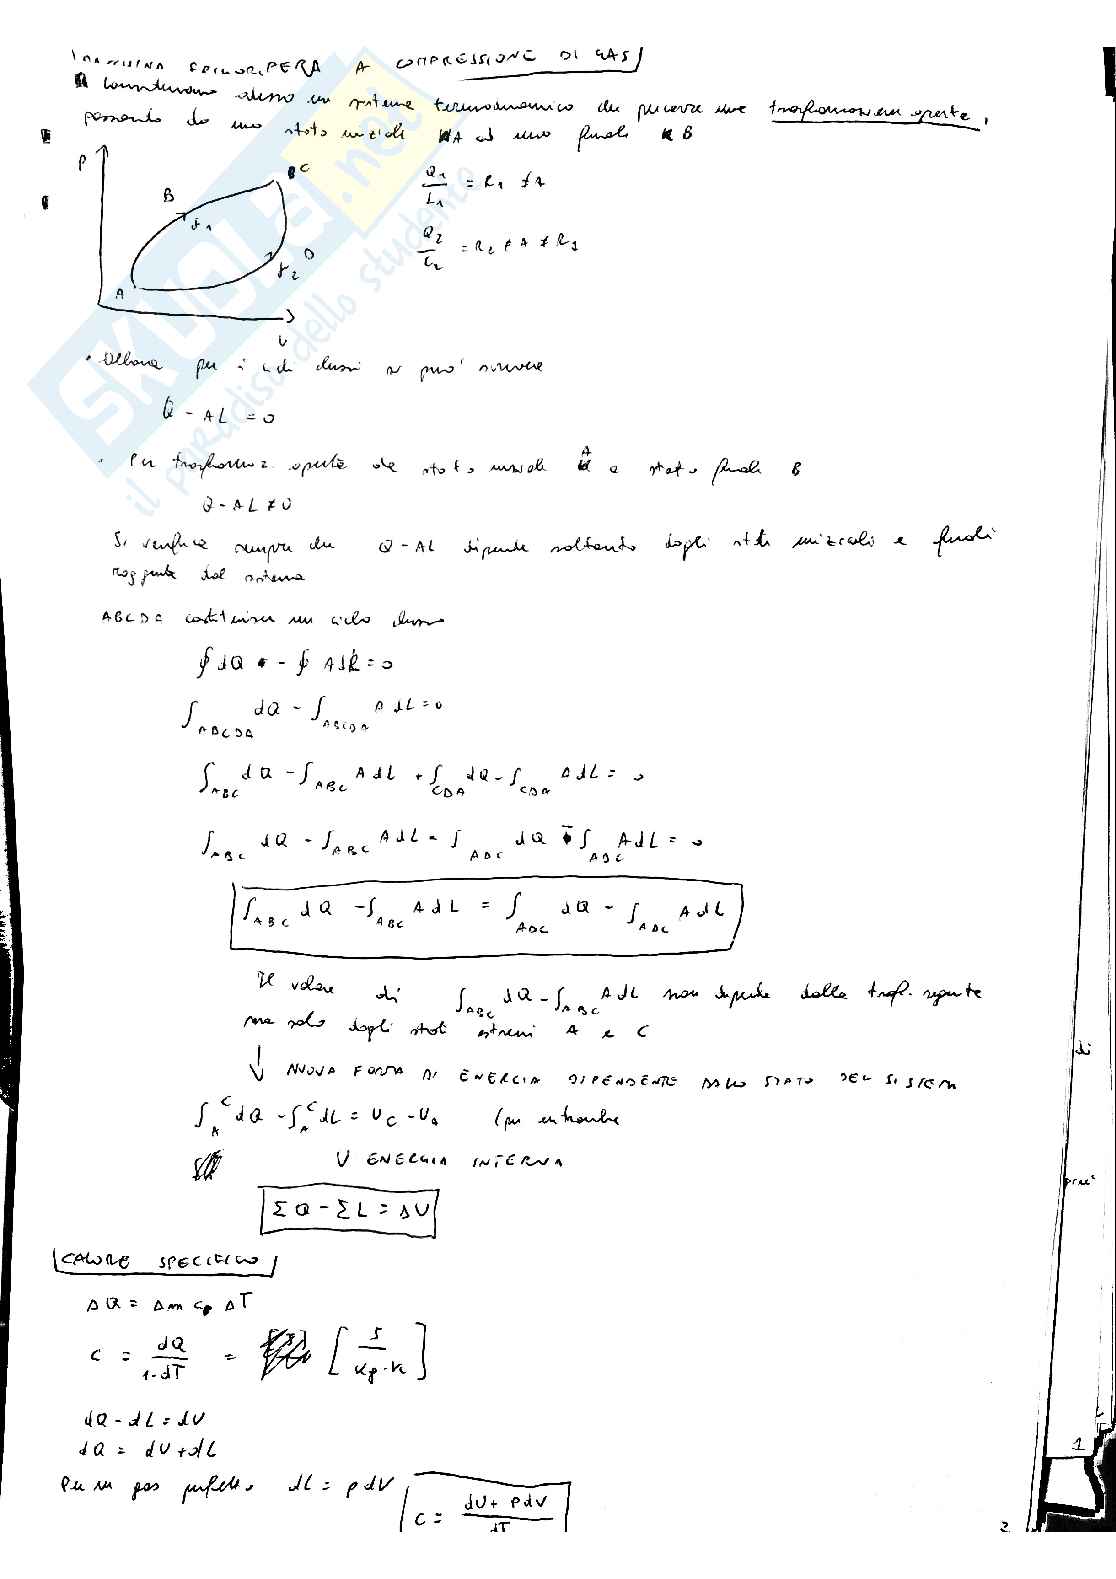 MACCHINA FRIGORIFERA A COMPRESSIONE DI GAS
Consideriamo adesso un sistema termodinamico che percorre una trasformazione aperta,
passando da uno stato iniziale A ad uno finale B
P
C
B
γ1
D
γ2
A
V
Q1/L1 = R1 ≠ A
Q2/L2 = R2 ≠ A ≠ R1
• Allora per i cicli chiusi si può scrivere
Q - AL = 0
• Per trasformaz. aperte da stato iniziale A a stato finale B
Q - AL ≠ 0
Si verifica sempre che Q - AL dipende soltanto dagli stati iniziali e finali
raggiunte dal sistema
ABCDA costituisce un ciclo chiuso
∮ dQ - ∮ AdL = 0
∫ABCDA dQ - ∫ABCDA AdL = 0
∫ABC dQ - ∫ABC AdL + ∫CDA dQ - ∫CDA AdL = 0
∫ABC dQ - ∫ABC AdL - ∫ADC dQ + ∫ADC AdL = 0
∫ABC dQ - ∫ABC AdL = ∫ADC dQ - ∫ADC AdL
Il valore di ∫ABC dQ - ∫ABC AdL non dipende dalla trasf. seguita
ma solo dagli stati estremi A e C
↓ NUOVA FORMA DI ENERGIA DIPENDENTE DALLO STATO DEL SISTEM
∫A^C dQ - ∫A^C dL = UC - UA (per entrambe
U ENERGIA INTERNA
ΣQ - ΣL = ΔU
CALORE SPECIFICO
ΔQ = Δm cp ΔT
c = dQ/1·dT = [J/Kg·K]
dQ - dL = dU
dQ = dU + dL
Per un gas perfetto dL = pdV
C = dU + PdV/dT
di
1
2
SKUOLA.net
il paradiso dello studente